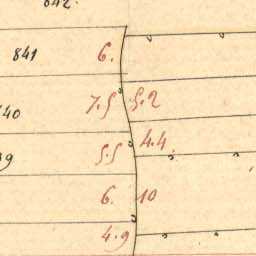 842.
841 6.
7.5 5.2
40
4.4
39 5.5
6. 10
4.9